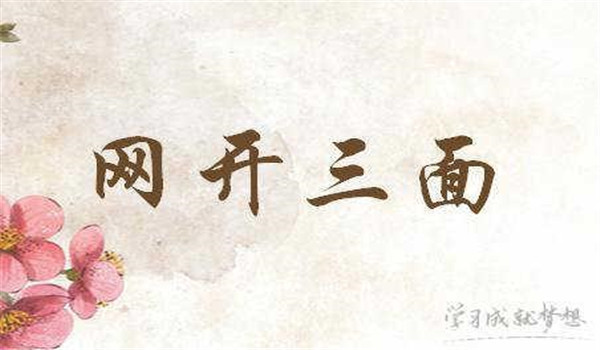 网开三面
学习成就梦想